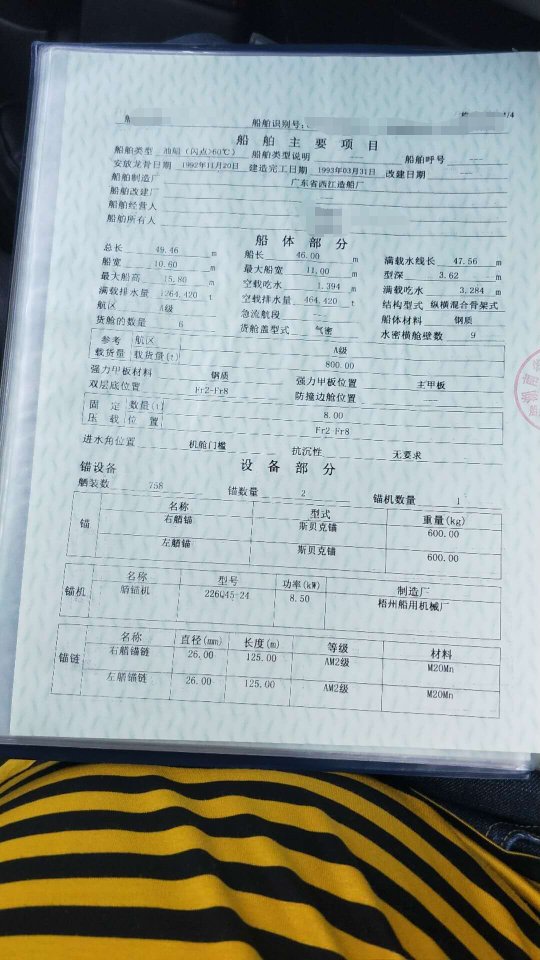 船舶识别号:
1/4
船 舶 主 要 项 目
船舶类型 油船（闪点>60℃） 船舶类型说明 ---- 船舶呼号 ----
安放龙骨日期 1992年11月20日 建造完工日期 1993年03月31日 改建日期 ----
船舶制造厂 广东省西江造船厂
船舶改建厂 ----
船舶经营人
船舶所有人
船 体 部 分
总长 49.46 m 船长 46.00 m 满载水线长 47.56 m
船宽 10.60 m 最大船宽 11.00 m 型深 3.62 m
最大船高 15.80 m 空载吃水 1.394 m 满载吃水 3.284 m
满载排水量 1264.420 t 空载排水量 464.420 t 结构型式 纵横混合骨架式
航区 A级 急流航段 ---- 船体材料 钢质
货舱的数量 6 货舱盖型式 气密 水密横舱壁数 9
参考载货量 航区 A级
载货量(t) 800.00
强力甲板材料 钢质 强力甲板位置 主甲板
双层底位置 Fr2-Fr8 防撞边舱位置 ----
固定压载 数量(t) 8.00
位置 Fr2-Fr8
进水角位置 机舱门槛 抗沉性 无要求
设 备 部 分
锚设备
舾装数 758 锚数量 2 锚机数量 1
锚 名称 型式 重量(kg)
右艏锚 斯贝克锚 600.00
左艏锚 斯贝克锚 600.00
锚机 名称 型号 功率(kW) 制造厂
艏锚机 226Q45-24 8.50 梧州船用机械厂
锚链 名称 直径(mm) 长度(m) 等级 材料
右艏锚链 26.00 125.00 AM2级 M20Mn
左艏锚链 26.00 125.00 AM2级 M20Mn